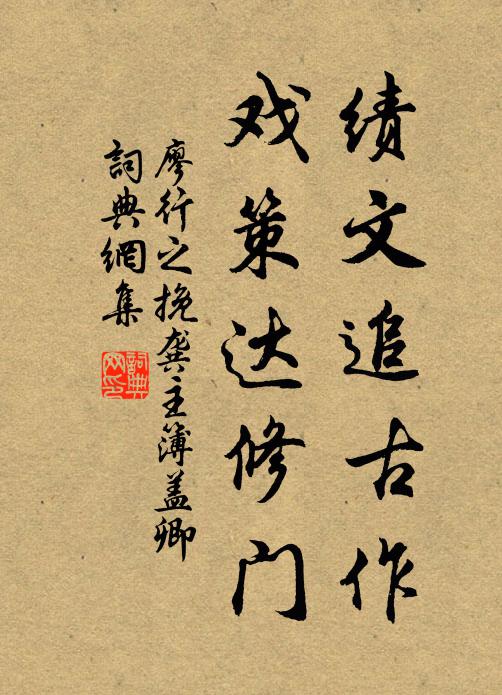 绩文追古作
戏策达修门
廖行之挽龚主簿盖卿
詞典網集
詞典网印